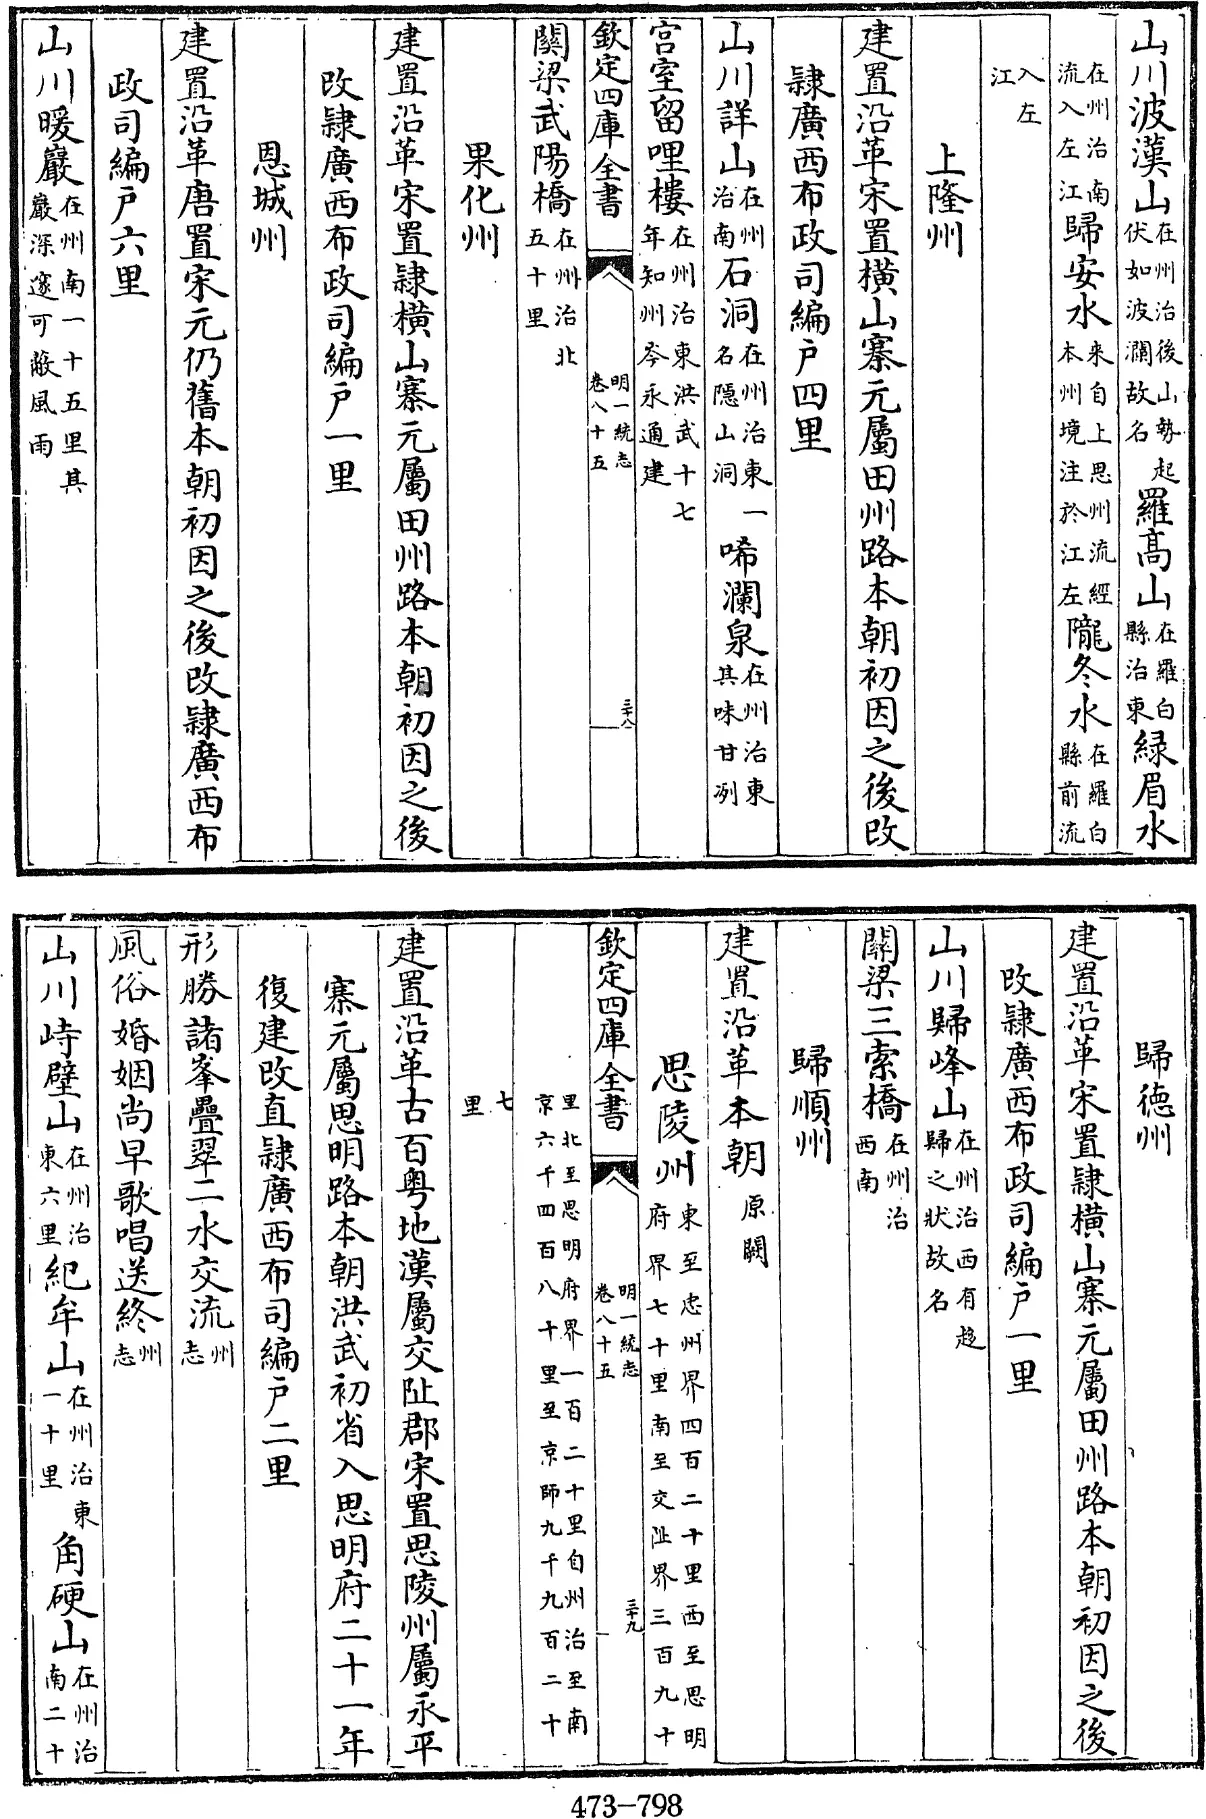 山川波漢山在州治後山勢起伏如波瀾故名羅髙山在羅白縣治東緑眉水
在州治南流入左江歸安水來自上思州流經本州境注於江左隴冬水在羅白縣前流
入左江
上隆州
建置沿革宋置橫山寨元屬田州路本朝初因之後改
隷廣西布政司編户四里
山川詳山在州治南石洞在州治東一名隱山洞唏瀾泉在州治東其味甘冽
宫室留哩樓在州治東洪武十七年知州岑永通建
欽定四庫全書
明一統志
卷八十五
三十八
關梁武陽橋在州治北五十里
果化州
建置沿革宋置隷橫山寨元屬田州路本朝初因之後
改隷廣西布政司編户一里
恩城州
建置沿革唐置宋元仍舊本朝初因之後改隷廣西布
政司編户六里
山川暖巖在州南一十五里其巖深邃可蔽風雨
歸德州
建置沿革宋置隷橫山寨元屬田州路本朝初因之後
改隷廣西布政司編户一里
山川歸峰山在州治西有趨歸之狀故名
關梁三索橋在州治西南
歸順州
建置沿革本朝原闕
思陵州東至忠州界四百二十里西至思明府界七十里南至交阯界三百九十
欽定四庫全書
明一統志
卷八十五
三十九
里北至思明府界一百二十里自州治至南京六千四百八十里至京師九千九百二十
七里
建置沿革古百粤地漢屬交阯郡宋置思陵州屬永平
寨元屬思明路本朝洪武初省入思明府二十一年
復建改直隷廣西布司編户二里
形勝諸峯疊翠二水交流州志
風俗婚姻尚早歌唱送終州志
山川峙壁山在州治東六里紀牟山在州治東一十里角硬山在州治南二十
473-798